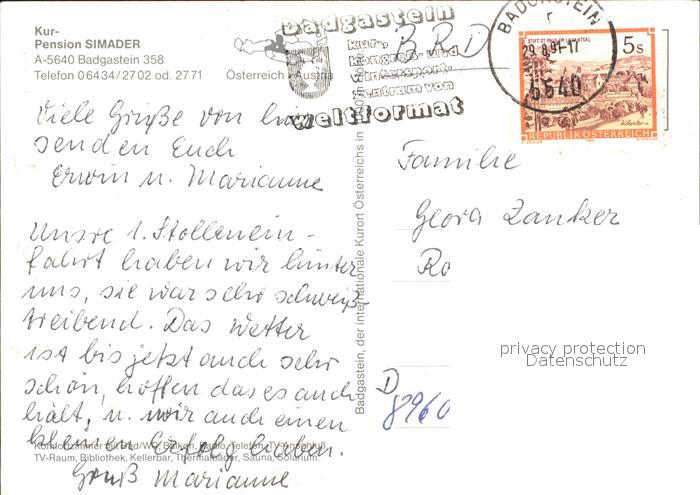 Kur-
Pension SIMADER
A-5640 Badgastein 358
Telefon 06434/2702 od. 2771
Österreich - Austria
Badgastein
kur-,
kongreß- und
wintersport-
zentrum von
weltformat
BADGASTEIN
r
29.8.91-17
5640
STIFT ST. PAUL IM LAVANTTAL
5s
REPUBLIK ÖSTERREICH
BRD
Viele Grüße von hier
senden Euch
Erwin u. Marianne
Unsre 1. Stollenein-
fahrt haben wir hinter
uns, sie war sehr schweiß-
treibend. Das Wetter
ist bis jetzt auch sehr
schön, hoffen das es auch
hält, u. wir auch einen
kleinen Erfolg haben.
Gruß Marianne
Komfortzimmer mit Bad/WC, Balkon, Radio, Telefon, TV-Anschluß,
TV-Raum, Bibliothek, Kellerbar, Thermalbäder, Sauna, Solarium.
Badgastein, der internationale Kurort Österreichs in
Familie
Georg Zanker
Ro
D
8960
privacy protection
Datenschutz